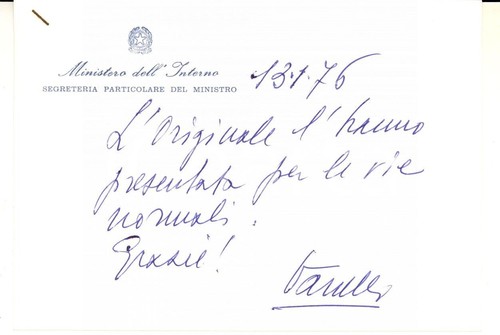 Ministero dell'Interno
SEGRETERIA PARTICOLARE DEL MINISTRO
13.1.76
L'Originale l'hanno
presentata per le vie
normali.
Grazie!